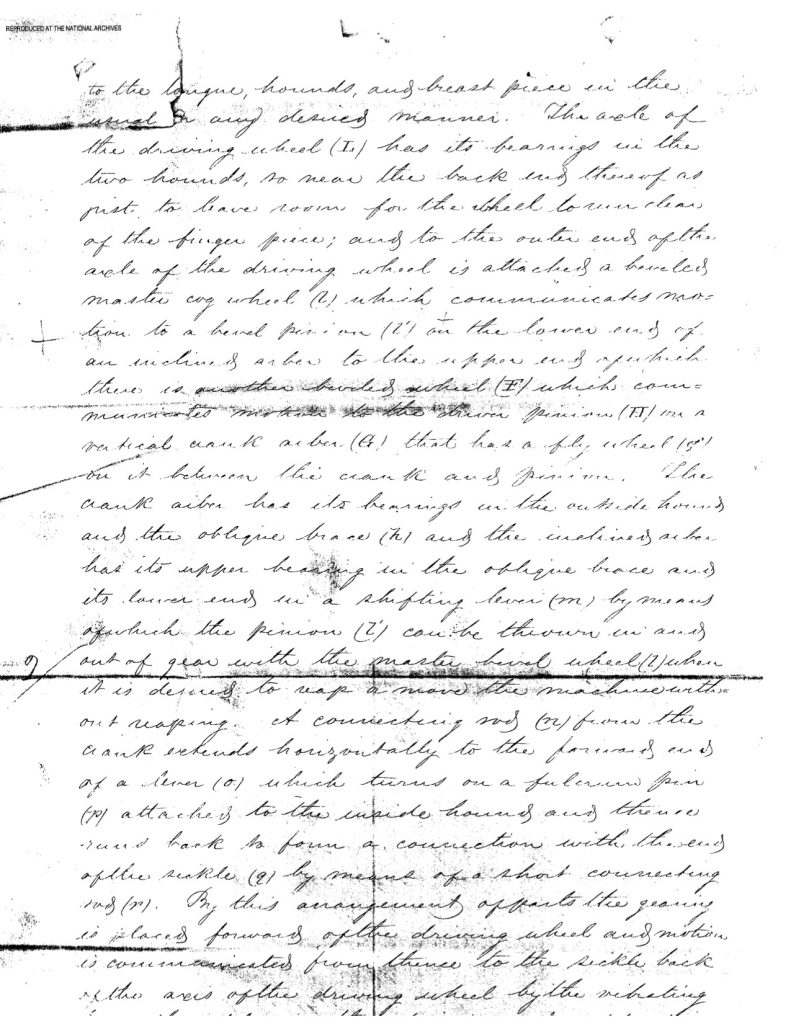 REPRODUCED AT THE NATIONAL ARCHIVES
to the tongue, hounds, and breast piece in the
usual or any desired manner. The axle of
the driving wheel (L) has its bearings in the
two hounds, so near the back end thereof as
just to leave room for the wheel to run clear
of the finger piece; and to the outer end of the
axle of the driving wheel is attached a beveled
master cog wheel (l) which communicates mo=
tion to a bevel pinion (l') on the lower end of
an inclined arbor to the upper end of which
there is another beveled wheel (F) which com=
municates motion to the driver pinion (H) on a
vertical crank arbor (G) that has a fly wheel (g')
on it between the crank and pinion. The
crank arbor has its bearings in the outside hound
and the oblique brace (h) and the inclined arbor
has its upper bearing in the oblique brace and
its lower end in a shifting lever (m) by means
of which the pinion (l') can be thrown in and
out of gear with the master bevel wheel (l) when
it is desired to reap or move the machine with=
out reaping. A connecting rod (n) from the
crank extends horizontally to the forward end
of a lever (o) which turns on a fulcrum pin
(p) attached to the inside hound and thence
runs back to form a connection with the end
of the sickle (q) by means of a short connecting
rod (r). By this arrangement of parts the gearing
is placed forward of the driving wheel and motion
is communicated from thence to the sickle back
of the axis of the driving wheel by the vibrating